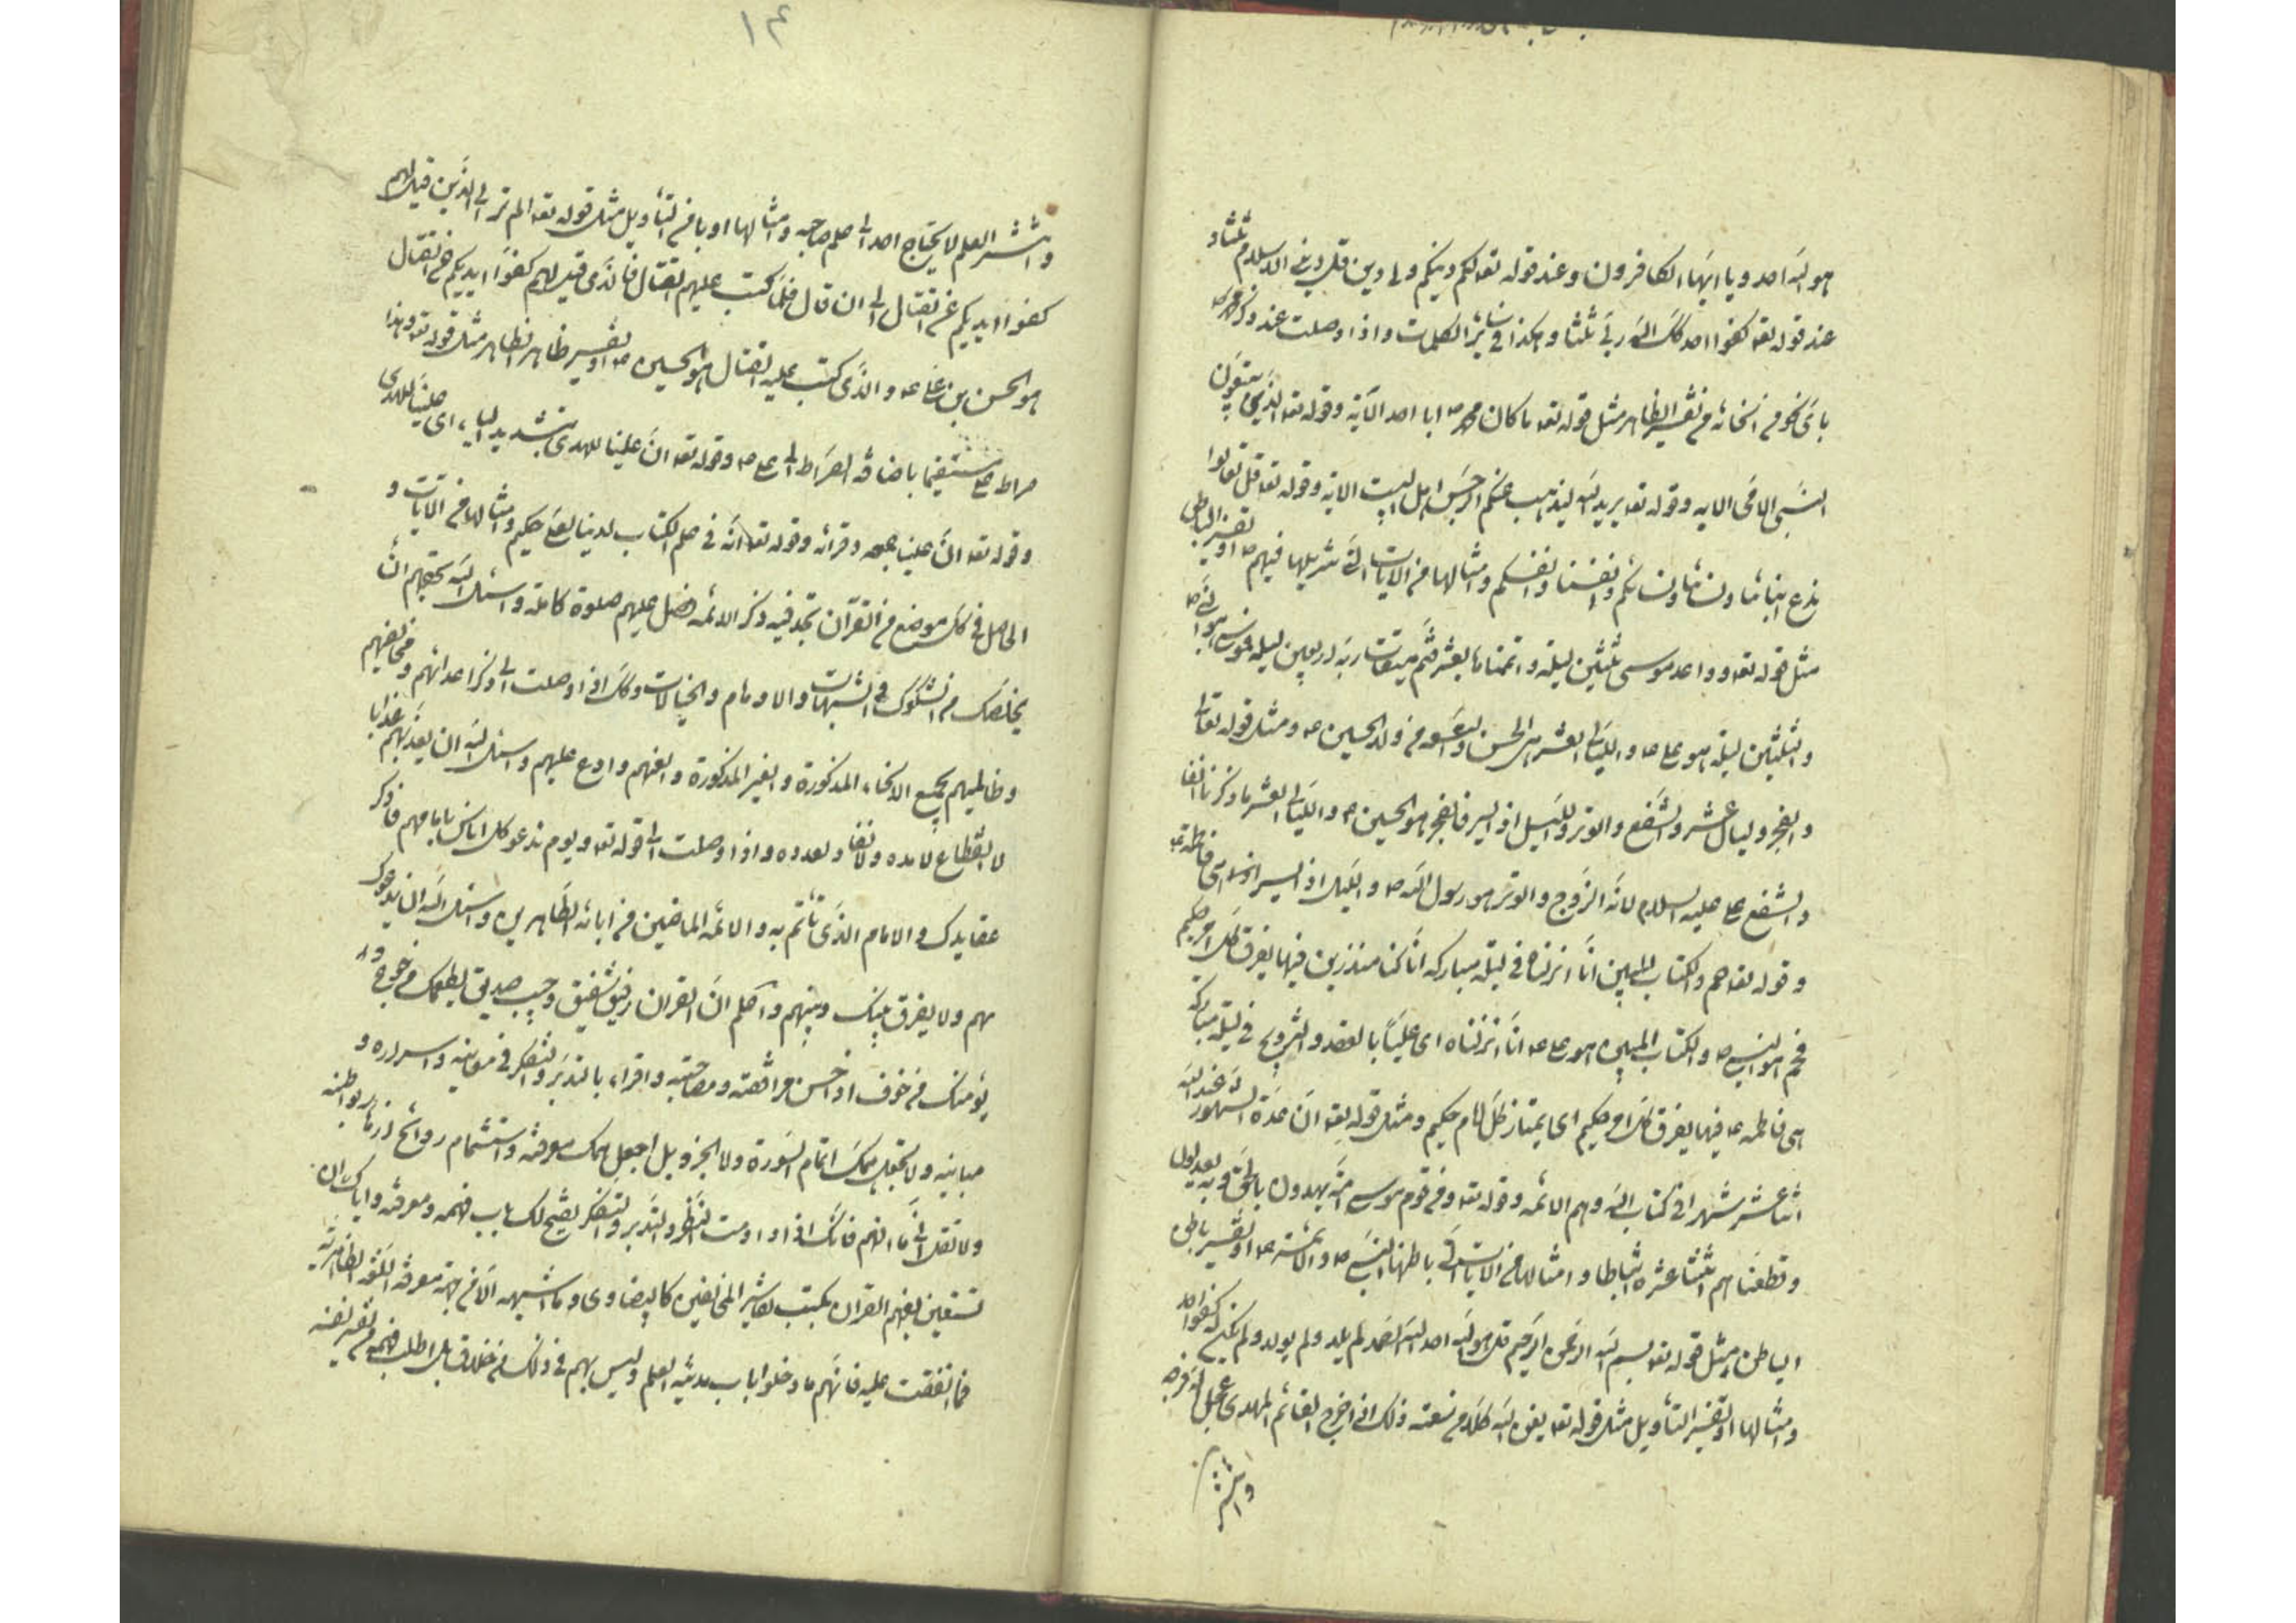 هو الله احد ويا ايها الكافرون وعند قوله تعه لكم دينكم ولى دين قل دينى الاسلام ثلثا و
عند قوله تعه كفوا احد كك الله ربى ثلثا وهكذا فى سائر الكلمات واذا وصلت عند ذكرهم
باى نحو من انحائه من تفسير الظاهر مثل قوله تعه ما كان محمد ص ابا احد الاية وقوله تعه الذين يتبعون
النبى الامى الايه وقوله تعه يريد الله ليذهب عنكم الرجس اهل البيت الاية وقوله تعه قل تعالوا
ندع ابنائنا ونسائنا ونسائكم وانفسنا وانفسكم وامثالها من الايات التى تنزيلها فيهم ع او تفسير الباطن
مثل قوله تعه وواعد موسى ثلثين ليلة واتمناها بعشر فتم ميقات ربه اربعين ليلة موسى هو النبى ص
والثلثين ليلة هو على ع والليالى العشر هى الحسن والتسعه من ولد الحسين ع ومثل قوله تعالى
والفجر وليال عشر والشفع والوتر والليل اذا يسر فالفجر هو الحسين ع والليالى العشر ما ذكرنا انفا
والشفع على عليه السلام لانه الزوج والوتر هو رسول الله ص والليل اذا يسر هى فاطمة ع
وقوله تعه حم والكتاب المبين انا انزلناه فى ليلة مباركه انا كنا منذرين فيها يفرق كل امر حكيم
فحم هو النبى ص والكتاب المبين هو على ع انا انزلناه اى عليا بالعقد والتزويج فى ليلة مباركة
هى فاطمه ع فيها يفرق كل امر حكيم اى يمتاز كل امام حكيم ومثل قوله تعه ان عدة الشهور عند الله
اثنا عشر شهرا فى كتاب الله وهم الائمه وقوله تعه ومن قوم موسى امة يهدون بالحق وبه يعدلون
وقطعناهم اثنتا عشره اسباطا وامثالها من الايات التى باطنها النبى ص والائمة ع او تفسير باطن
الباطن مثل قوله تعه بسم الله الرحمن الرحيم قل هو الله احد الله الصمد لم يلد ولم يولد ولم يكن له كفوا احد
وامثالها او تفسير التأويل مثل قوله تعه يغن الله كلا من سعته وذلك اذا خرج القائم المهدى عجل الله فرجه
وانتشر
١٤
وانتشر العلم لا يحتاج احد الى علم صاحبه وامثالها او باطن التأويل مثل قوله تعه الم تر الى الذين قيل لهم
كفوا ايديكم عن القتال الى ان قال فلما كتب عليهم القتال فالذى قيل لهم كفوا ايديكم عن القتال
هو الحسن بن على ع والذى كتب عليه القتال هو الحسين ع او تفسير ظاهر الظاهر مثل قوله تعه وهذا
صراط على مستقيما باضافة الصراط الى على ع وقوله تعه ان علينا للهدى بتشديد الياء اى عليا للهدى
وقوله تعه ان علينا جمعه وقرانه وقوله تعه انه فى ام الكتاب لدينا لعلى حكيم وامثالها من الايات و
الحاصل فى كل موضع من القرآن تجد فيه ذكر الائمه فصل عليهم صلوة كاملة واسئل الله بحقهم ان
يخلصك من الشكوك والشبهات والاوهام والخيالات وكك اذا وصلت الى ذكر اعدائهم ومخالفيهم
وظالميهم بجميع الانحاء المذكورة والغير المذكورة والعنهم وادع عليهم واسئل الله ان يعذبهم عذابا
لا انقطاع لامده ولا نفاد لعدده واذا وصلت الى قوله تعه ويوم ندعو كل اناس بامامهم فاذكر
عقايدك والامام الذى تأتم به والائمه الماضين من ابائه الطاهرين واسئل الله ان يدعوك
بهم ولا يفرق بينك وبينهم واعلم ان القران رفيق شفيق وحبيب صديق يطعمك من جوع و
يؤمنك من خوف اذا احسن مرافقته ومصاحبته واقراء بالتدبر والتفكر فى معانيه واسراره و
مبانيه ولا تجعل همك اتمام السورة ولا الجزو بل اجعل همك معرفته واستشمام روائح ازهار بواطنه
ولا تقل انى ما افهم فانك اذا داومت النظر والتدبر والتفكر يفتح لك باب فهمه ومعرفته واياك ان
تستعين لفهم القران بكتب تفاسير المخالفين كالبيضاوى وما اشبهه الا من جهة معرفة اللغة الظاهرية
فما اتفقت عليه فانهم ما دخلوا باب مدينة العلم وليس لهم فى ذلك من خلاق بل اطلب فهمه من